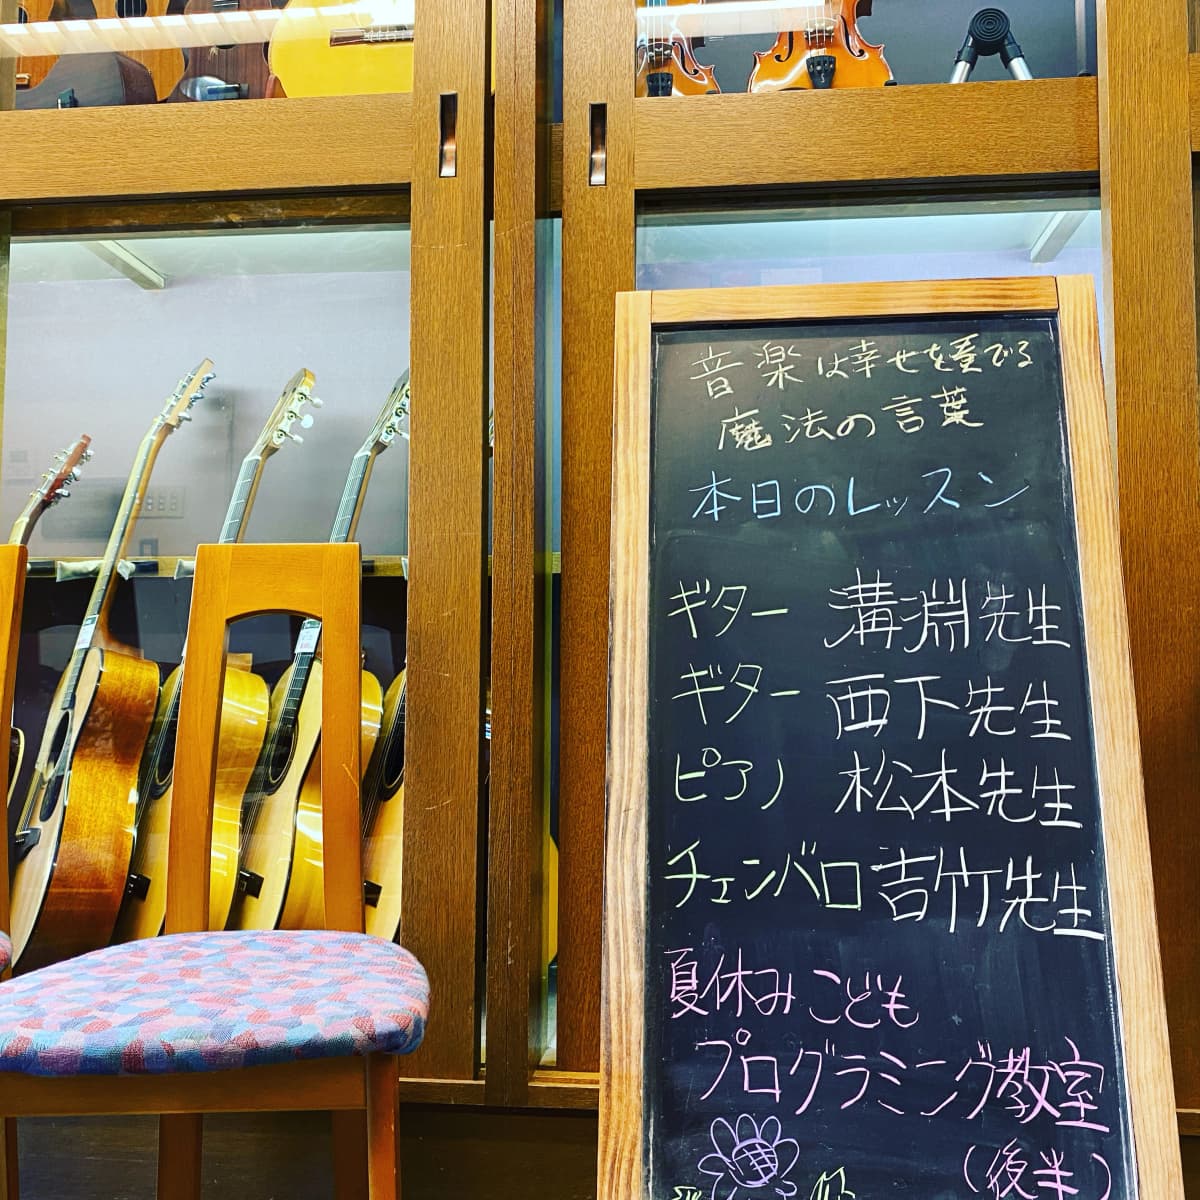 音楽は幸せを奏でる
魔法の言葉
本日のレッスン
ギター 溝淵先生
ギター 西下先生
ピアノ 松本先生
チェンバロ 吉竹先生
夏休みこども
プログラミング教室
(後半)